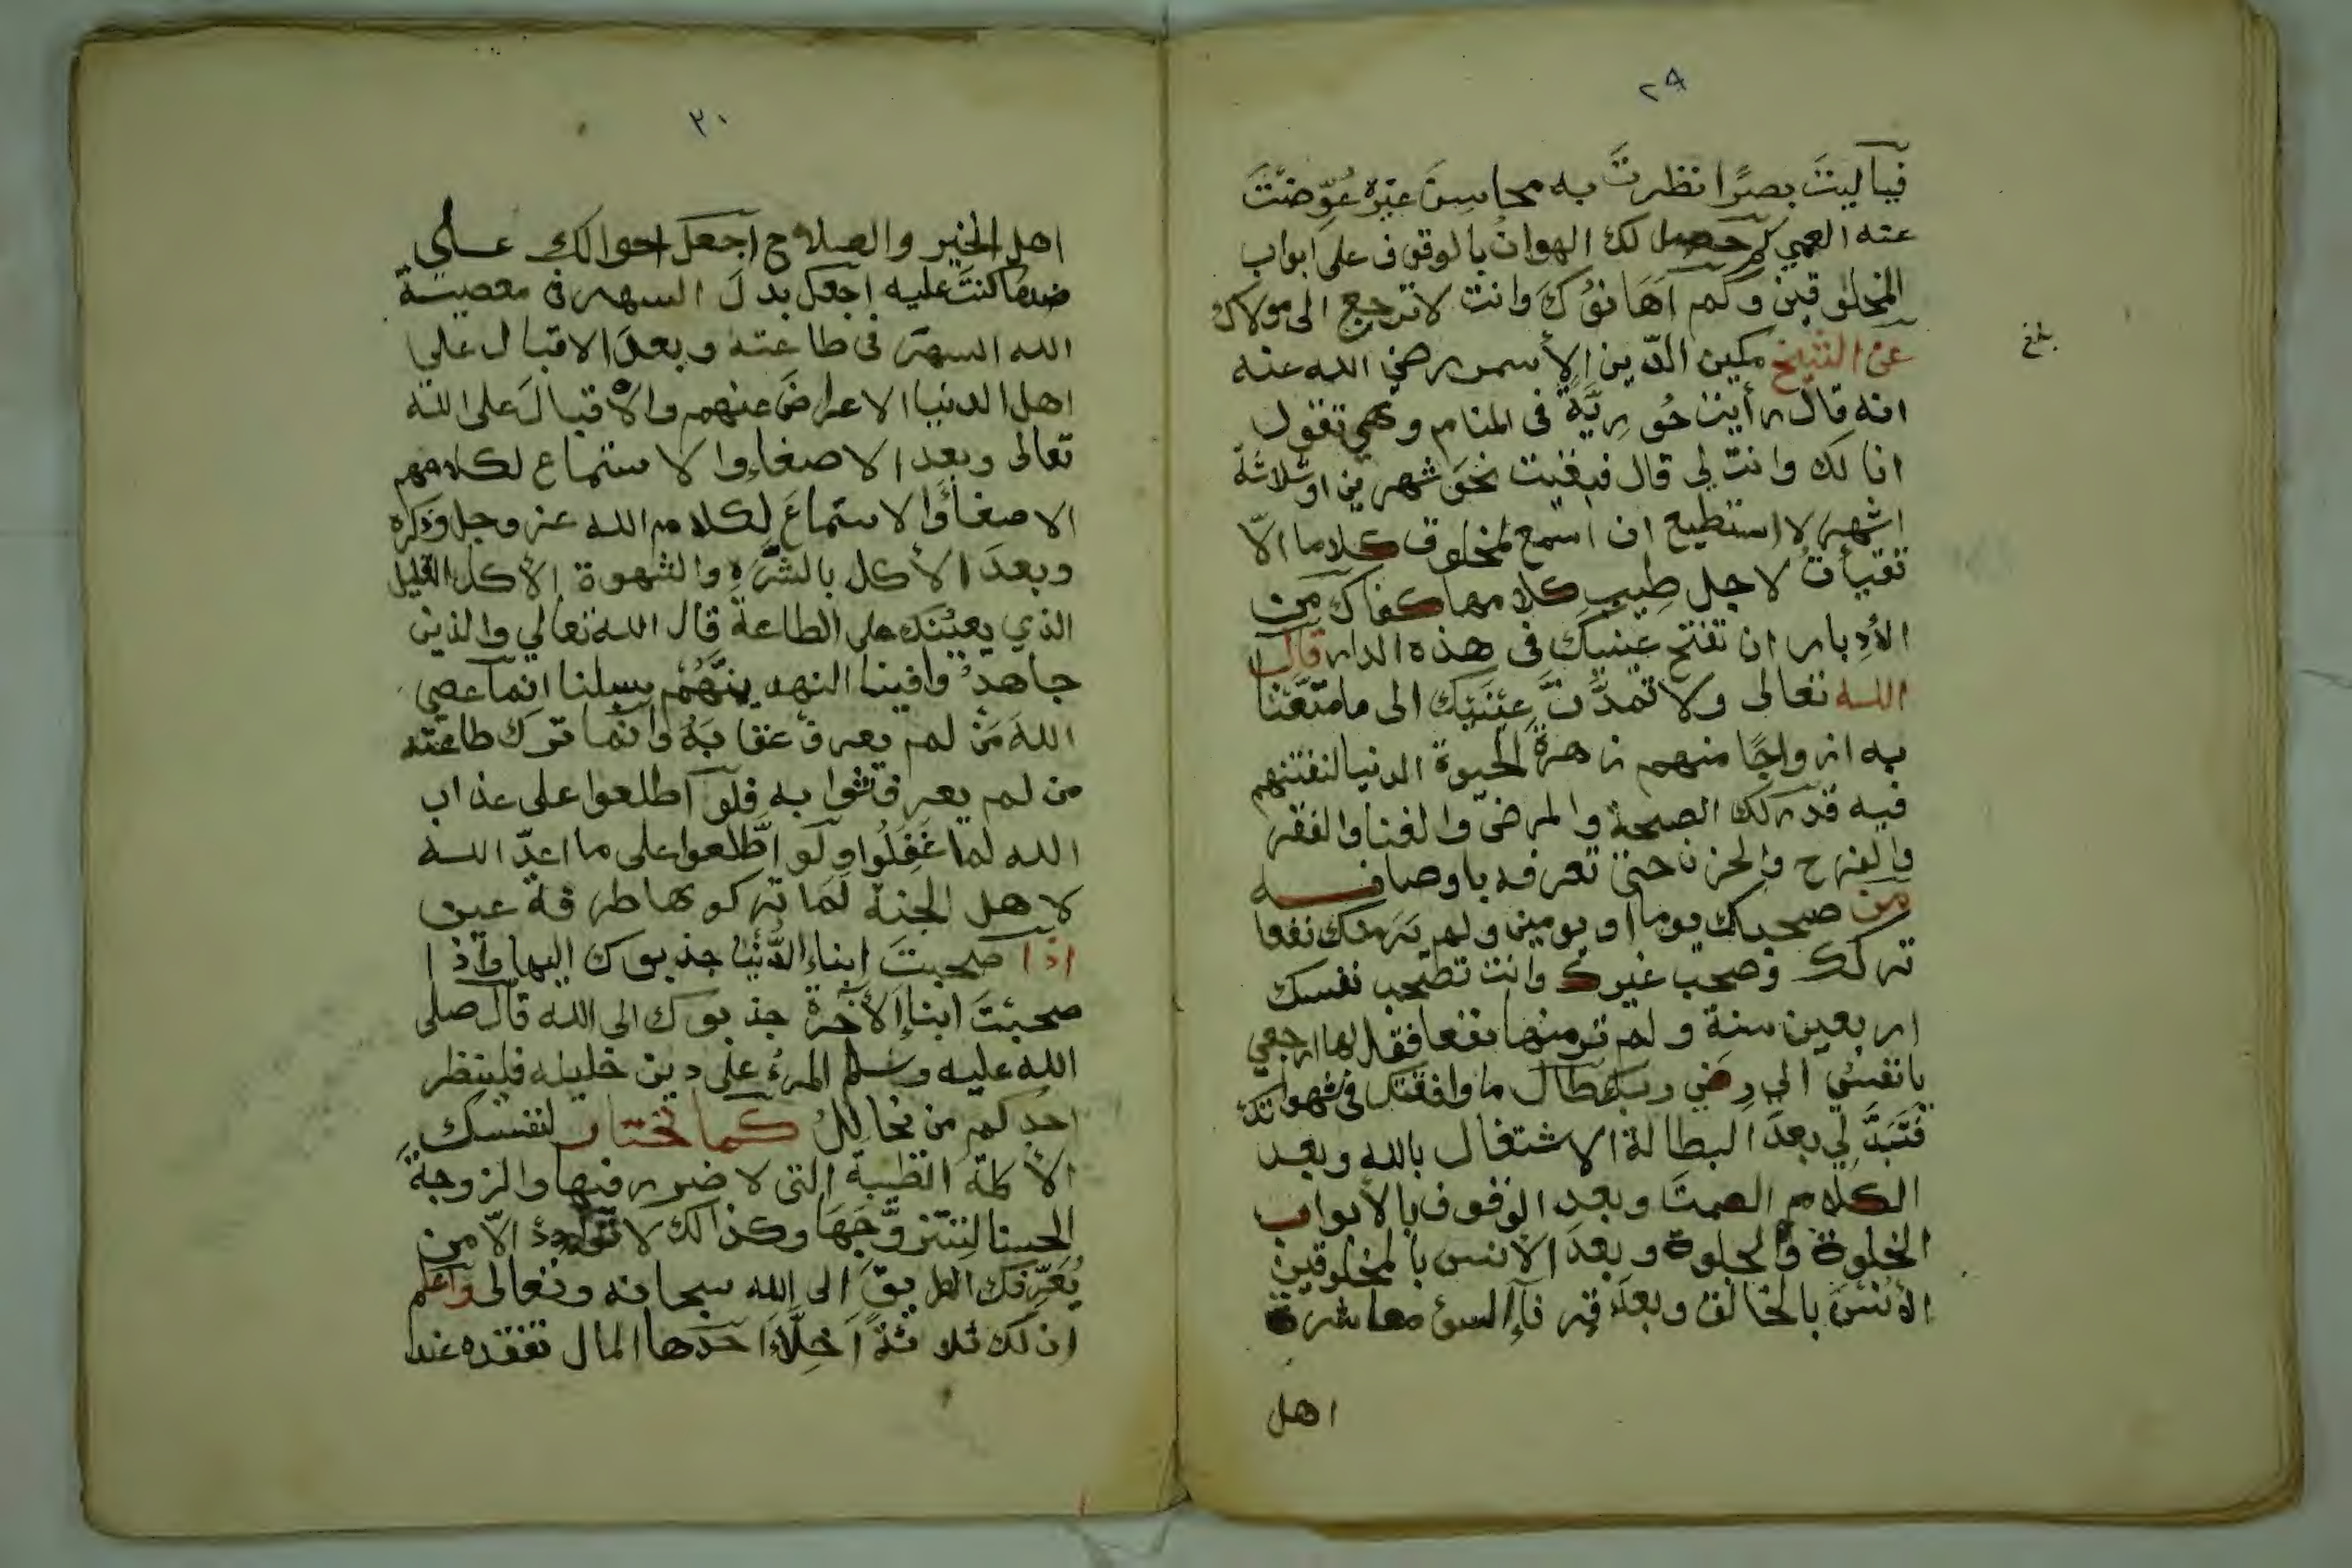 ٢٩
فياليتَ بصرًا نظرتَ به محاسِنَ غيْرِه عُوِّضْتَ
عنه العمي كم حصل لك الهوان بالوقوف على ابواب
المخلوقين وكم اَهَانُوْكَ وانت لا ترجع الى مولاك
عن الشيخ مكين الدّين الأسمر رضي الله عنه
انه قال رأيت حُورِيَّةً في المنام وهي تقول
انا لك وانت لي قال فبقيت نحوَ شهرين اوثلاثة
اشهر لا استطيع ان اسمع لمخلوق كلاما الّا
تقيأتُ لاجل طيبِ كلامها كفاك من
الأدبار ان تفتح عينيك في هذه الدار قال
الله تعالى ولا تمدَّنَّ عيْنَيْك الى ما متّعْنا
به ازواجًا منهم زهرةَ الحيوة الدنيا لنفتنهم
فيه قدر لك الصحة والمرض والغنا والفقر
والفرح والحزن حتى تعرفه باوصافه
من صحبك يوما او يومين ولم يَرَ منك نفعا
تركك وصحب غيرك وانت تصْحب نفسك
اربعين سنة ولم تر منها نفعا فقل لها ارجعي
يا نفسُ الى رِضي ربك طال ما وافقتك في شهواتك
فتَبَدَّلي بعدَ البطالة الاشتغال بالله وبعد
الكلام الصمتَ وبعد الوقوف بالأبواب
الخلوة والجلوة وبعدَ الأنس بالمخلوقين
الأُنْسَ بالخالق وبعدَ قرنآءِ السوء معاشرة
اهل
بلغ
٣٠
اهل الخير والصلاح اجعل احوالك على
ضد ما كنتَ عليه اجعل بدلَ السهر في معصية
الله السهرَ في طاعته وبعدَ الاقبال على
اهل الدنيا الاعراضَ عنهم والاقبالَ على الله
تعالى وبعد الاصغاءِ والاستماع لكلامهم
الاصغاءَ والاستماعَ لكلام الله عز وجل وذكره
وبعدَ الأكل بالشَّرَهِ والشهوة الأكل القليل
الذي يعيْنك على الطاعة قال الله تعالي والذين
جاهدُوا فينا لنهدينَّهُمْ سبلنا انما عصي
اللهَ مَنْ لم يعرف عقابَهُ وانّما ترك طاعته
من لم يعرف ثوابه فلو اطلعوا على عذاب
الله لما غَفَلُوا ولَو اطَّلعوا على ما اعدّ الله
لاهل الجنة لَما تركوها طرفة عين
اذا صحبتَ ابناءِ الدُّنْيا جذبوك اليها واذا
صحبْتَ ابناءِ الآخرة جذبوك الى الله قال صلى
الله عليه وسلم المرءُ على دين خليله فلينظر
احدكم من يخاللُ كما تختار لنفسك
الأكلة الطيبة التي لا ضرر فيها والزوجة
الحسنا لتتزوَّجَهَا وكذالك لا تُوادِدْ الّا من
يُعَرِّفك الطريقَ الى الله سبحانه وتعالى واعلم
ان لك ثلاثةَ اَخِلَّآءَ احدها المال تفقده عند